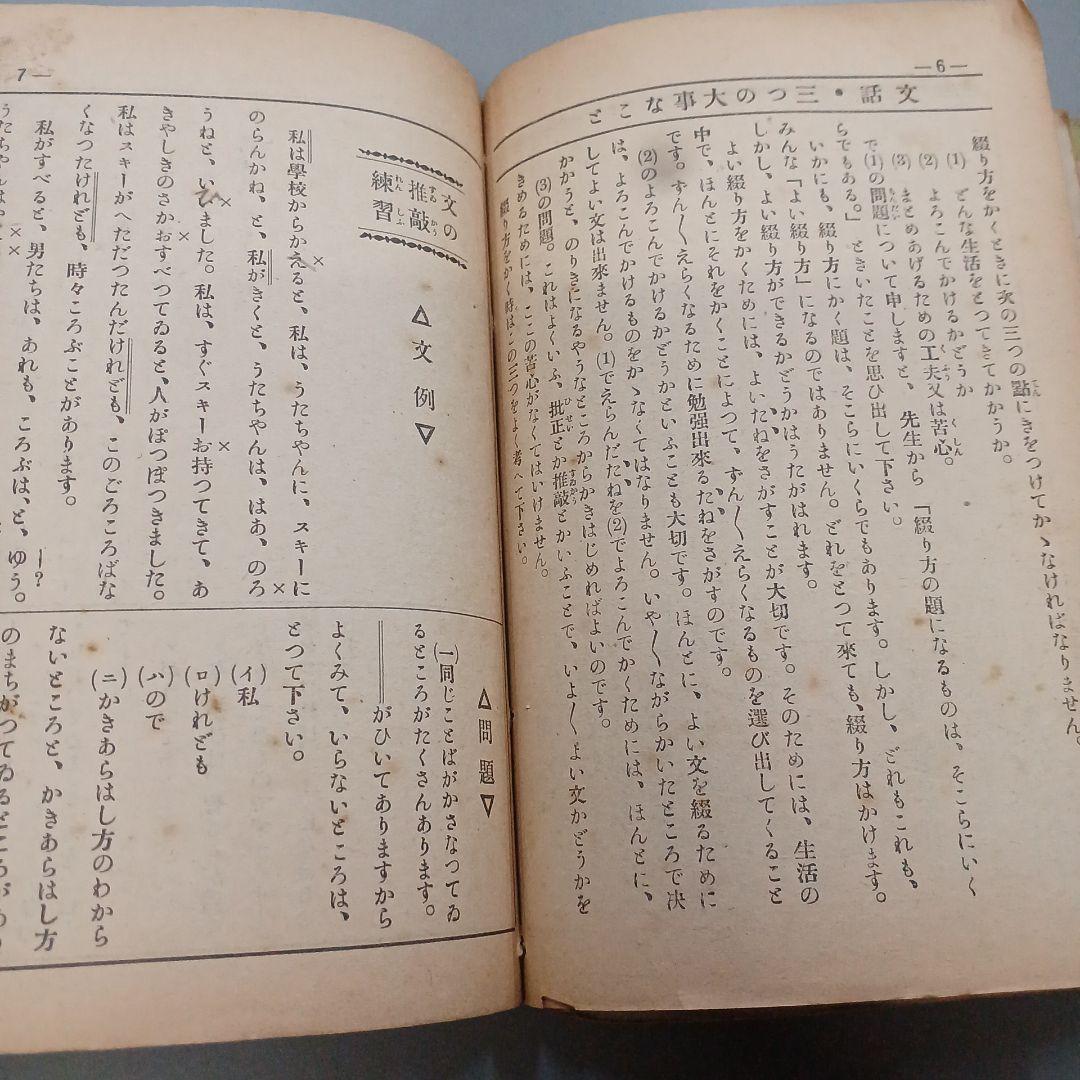 —6—
文話・三つの大事なこと
綴り方をかくときに次の三つの點にきをつけてかゝなければなりません。
(1) どんな生活をとつてきてかかうか。
(2) よろこんでかけるかどうか
(3) まとめあげるための工夫又は苦心。
で(1)の問題について申しますと、先生から「綴り方の題になるものは、そこらにいく
らでもある。」ときいたことを思ひ出して下さい。
いかにも、綴り方にかく題は、そこらにいくらでもあります。しかし、どれもこれも、
みんな「よい綴り方」になるのではありません。どれをとつて來ても、綴り方はかけます。
しかし、よい綴り方ができるかどうかはうたがはれます。
よい綴り方をかくためには、よいたねをさがすことが大切です。そのためには、生活の
中で、ほんとにそれをかくことによつて、ずん〱えらくなるものを選び出してくること
です。ずん〱えらくなるために勉强出來るたねをさがすのです。
(2)のよろこんでかけるかどうかといふことも大切です。ほんとに、よい文を綴るために
は、よろこんでかけるものをかゝなくてはなりません。いや〱ながらかいたところで决
してよい文は出來ません。(1)でえらんだたねを(2)でよろこんでかくためには、ほんとに、
かかうと、のりきになるやうなところからかきはじめればよいのです。
(3)の問題。これはよくいふ、批正とか推敲とかいふことで、いよ〱よい文かどうかを
きめるためには、ここの苦心がなくてはいけません。
綴り方をかく時はこの三つをよく考へて下さい。
7—
文の推敲練習
△文例▽
私は學校からかえると、私は、うたちやんに、スキーに
のらんかね、と、私がきくと、うたちやんは、はあ、のろ
うねと、いひました。私は、すぐスキーお持つてきて、あ
きやしきのさかおすべつてゐると、人がぽつぽつきました。
私はスキーがへただつたんだけれども、このごろころばな
くなつたけれども、時々ころぶことがあります。
—?
私がすべると、男たちは、あれも、ころぶは、と、ゆう。
△問題▽
(一同じことばがかさなつてゐ
るところがたくさんあります。
がひいてありますから
よくみて、いらないところは、
とつて下さい。
(イ私
(ロけれども
(ハので
(ニかきあらはし方のわから
ないところと、かきあらはし方
のまちがつてゐるところが